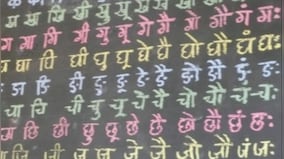 ख खा खि खी खु खू खे खै खो खौ खं खः
ग गा गि गी गु गू गे गै गो गौ गं गः
घ घा घि घी घु घू घे घै घो घौ घं घः
ङ ङा ङि ङी ङु ङू ङे ङै ङो ङौ ङं ङः
चा चि ची चु चू चे चै चो चौ चं चः
छ छा छि छी छु छू छे छै छो छौ छं छः
जा जि जी जु जू जे जै जो जौ जं जः